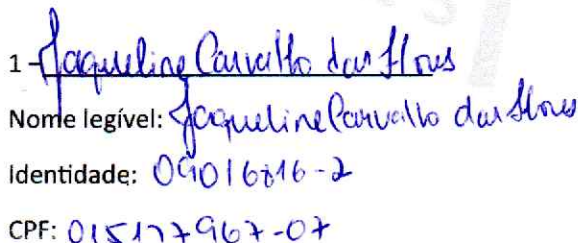 1 - Jaqueline Carvalho das Flores
Nome legível: Jaqueline Carvalho das Flores
Identidade: 09016816-2
CPF: 015177967-07